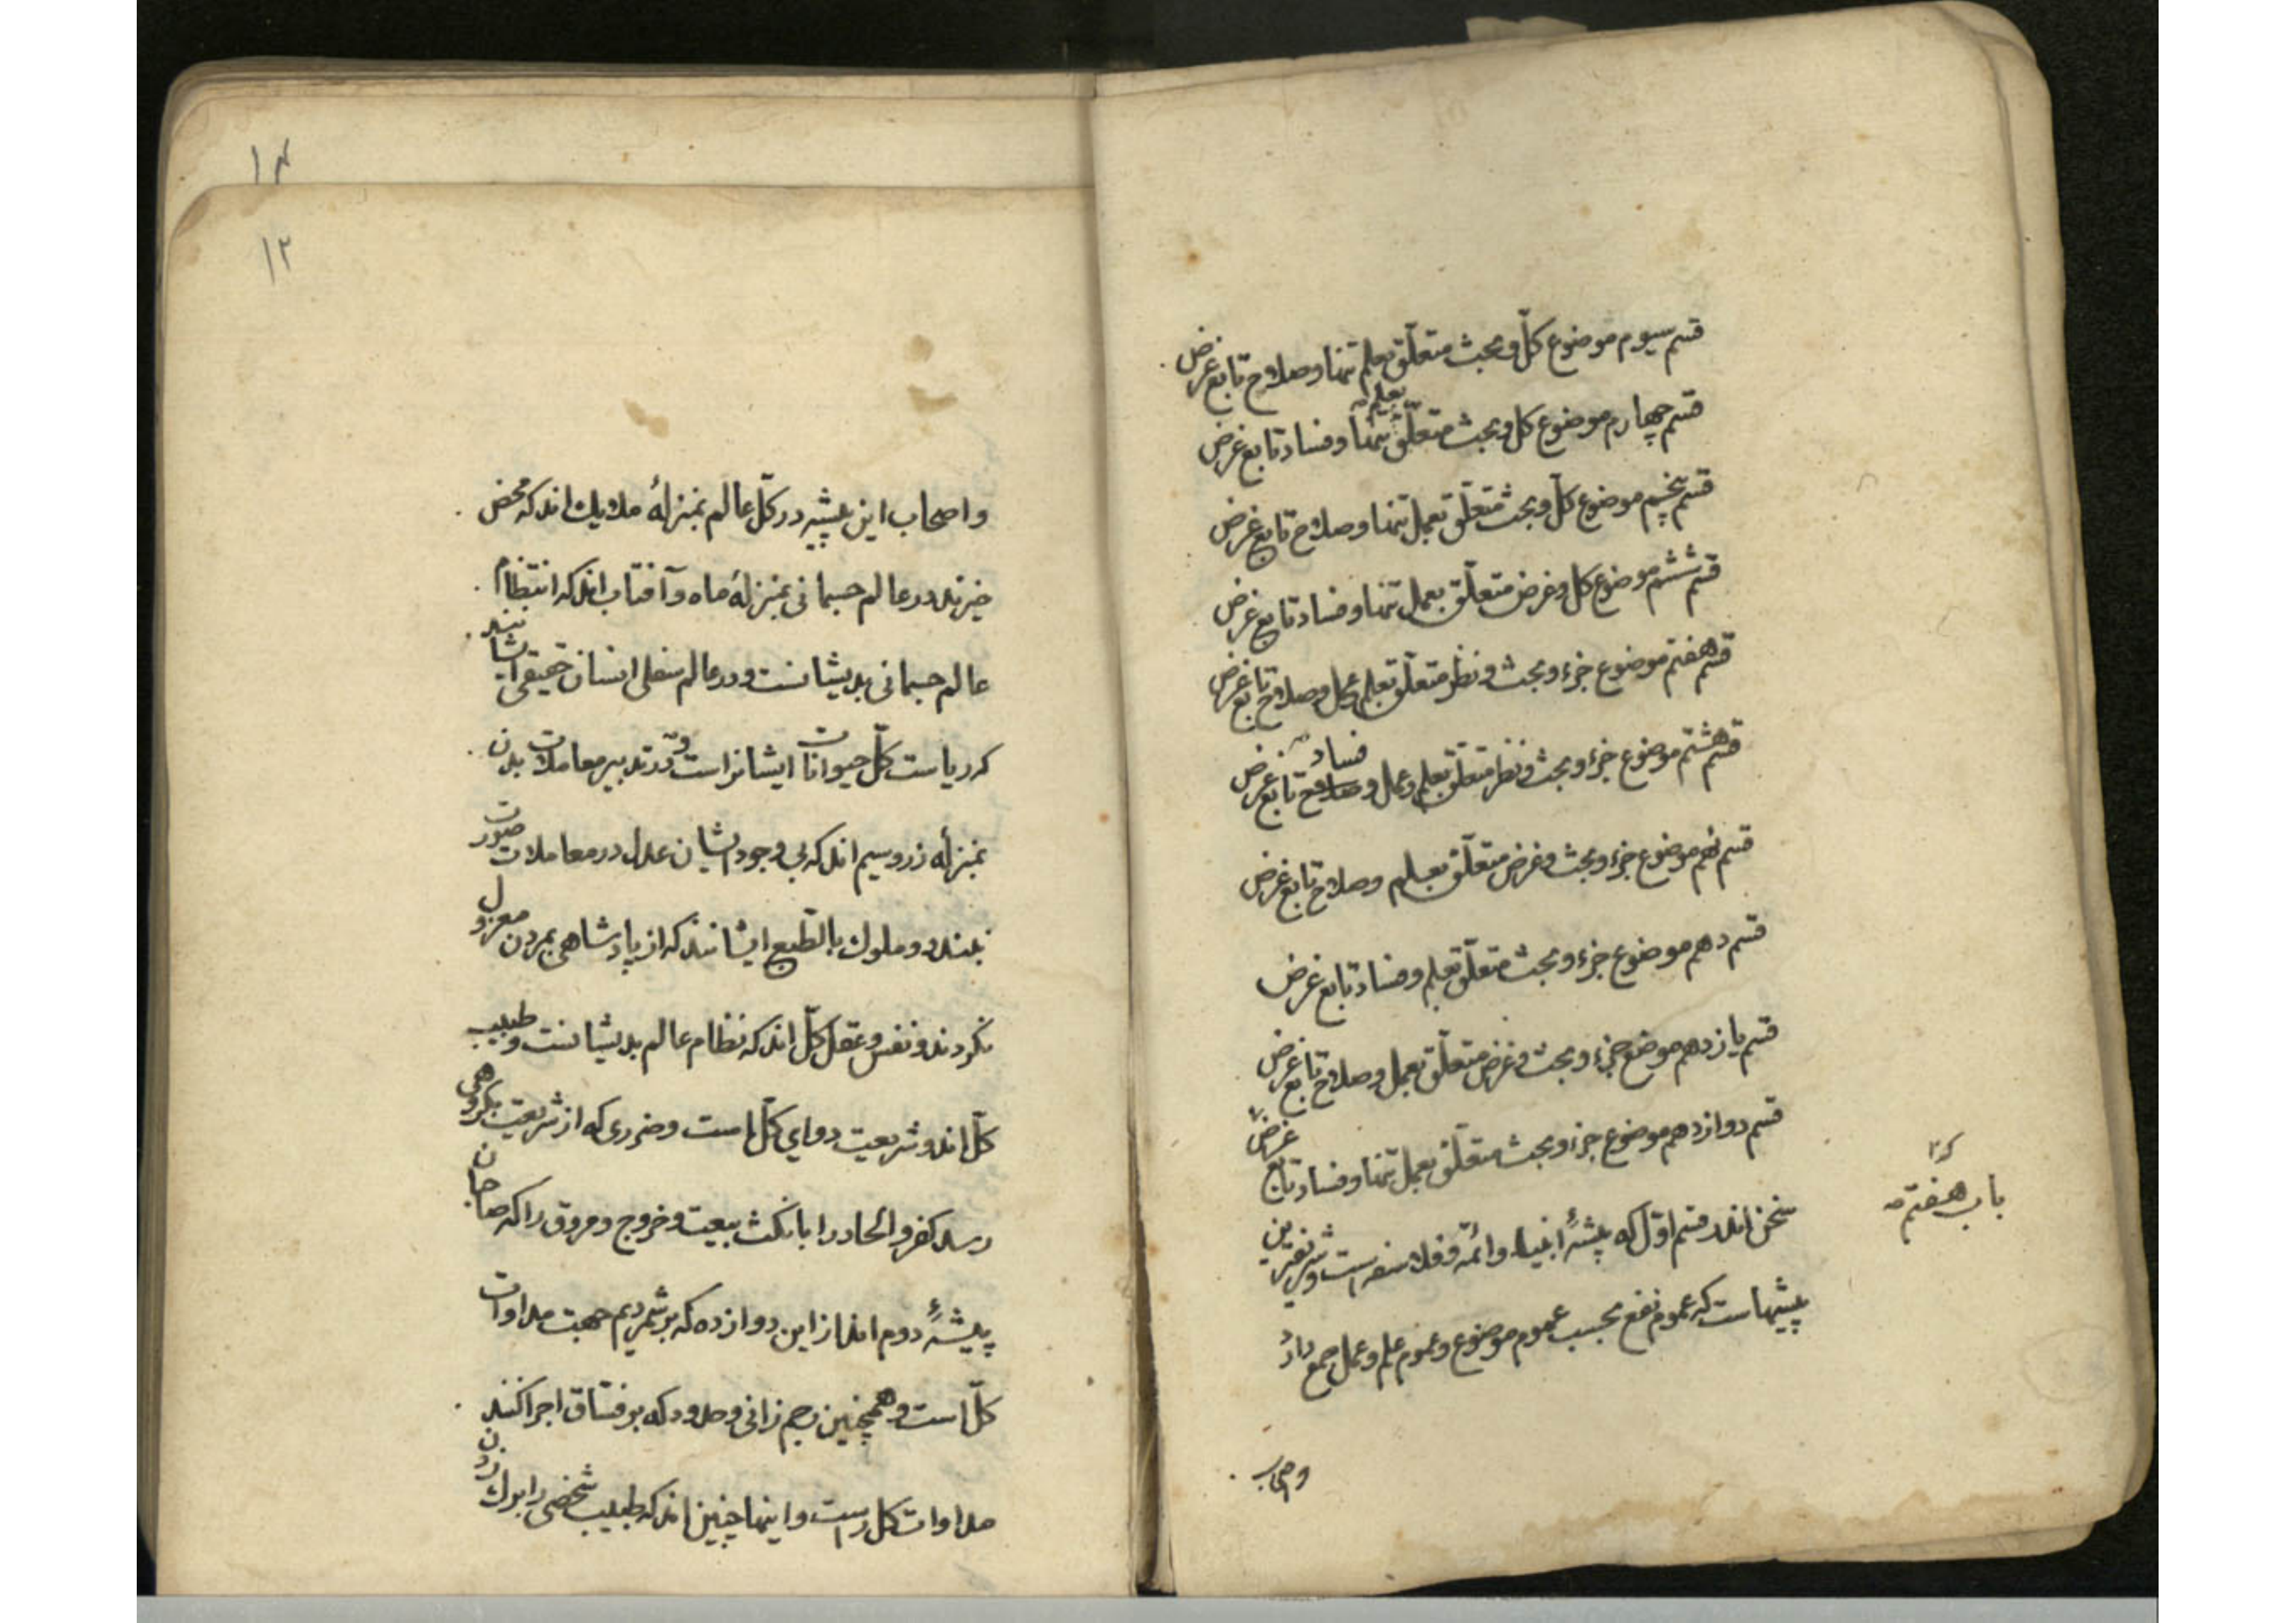 قسم سیوم موضوع کلّ و بحث متعلّق بعلم تنها و صلاح تابع غرض
قسم چهارم موضوع کل و بحث متعلّق بعلم تنها و فساد تابع غرض
قسم پنجم موضوع کلّ و بحث متعلّق بعمل تنها و صلاح تابع غرض
قسم ششم موضوع کل و غرض متعلّق بعمل تنها و فساد تابع غرض
قسم هفتم موضوع جزء و بحث و نظر متعلّق بعلم و عمل و صلاح تابع غرض
قسم هشتم موضوع جزء و بحث و نظر متعلّق بعلم و عمل و فساد تابع غرض
قسم نهم موضوع جزء و بحث و غرض متعلّق بعلم و صلاح تابع غرض
قسم دهم موضوع جزء و بحث متعلّق بعلم و فساد تابع غرض
قسم یازدهم موضوع جزء و بحث و غرض متعلّق بعمل و صلاح تابع غرض
قسم دوازدهم موضوع جزء و بحث متعلّق بعمل تنها و فساد تابع غرض
باب هفتم
سخن اندر قسم اوّل که پیشهٔ انبیاء و ائمّه و فلاسفه است و شریفترین
پیشهاست که عموم نفع بحسب عموم موضوع و عموم علم و عمل جمع دارد
و اصحاب
۱۴
۱۲
و اصحاب این پیشه در کلّ عالم بمنزلهٔ ملایک اند که محض
خیرند در عالم جسمانی بمنزلهٔ ماه و آفتاب اند که انتظام
عالم جسمانی بدیشانست و در عالم سفلی انسان حقیقی ایشانند
که ریاست کلّ حیوانات ایشانراست و در تدبیر معاملات بدن
بمنزلهٔ زر و سیم اند که بی وجود ایشان عدل در معاملات صورت
نبندد و ملوک بالطّبع ایشانند که از پادشاهی بمردن معزول
نکردند و نفس و عقل کلّ اند که نظام عالم بدیشانست و طبیب
کلّ اند و شریعت دوای کلّ است و ضرری که از شریعت بکروهی
رسد کفر و الحاد را با نکث بیعت و خروج و مروق را که صاحبان
پیشهٔ دوم اند از این دوازده که برشمردیم جهت مداوات
کلّ است و همچنین رجم زانی و حدود که بر فسّاق اجرا کنند
مداوات کل راست و اینها چنین اند که طبیب شخصی را برک زدن